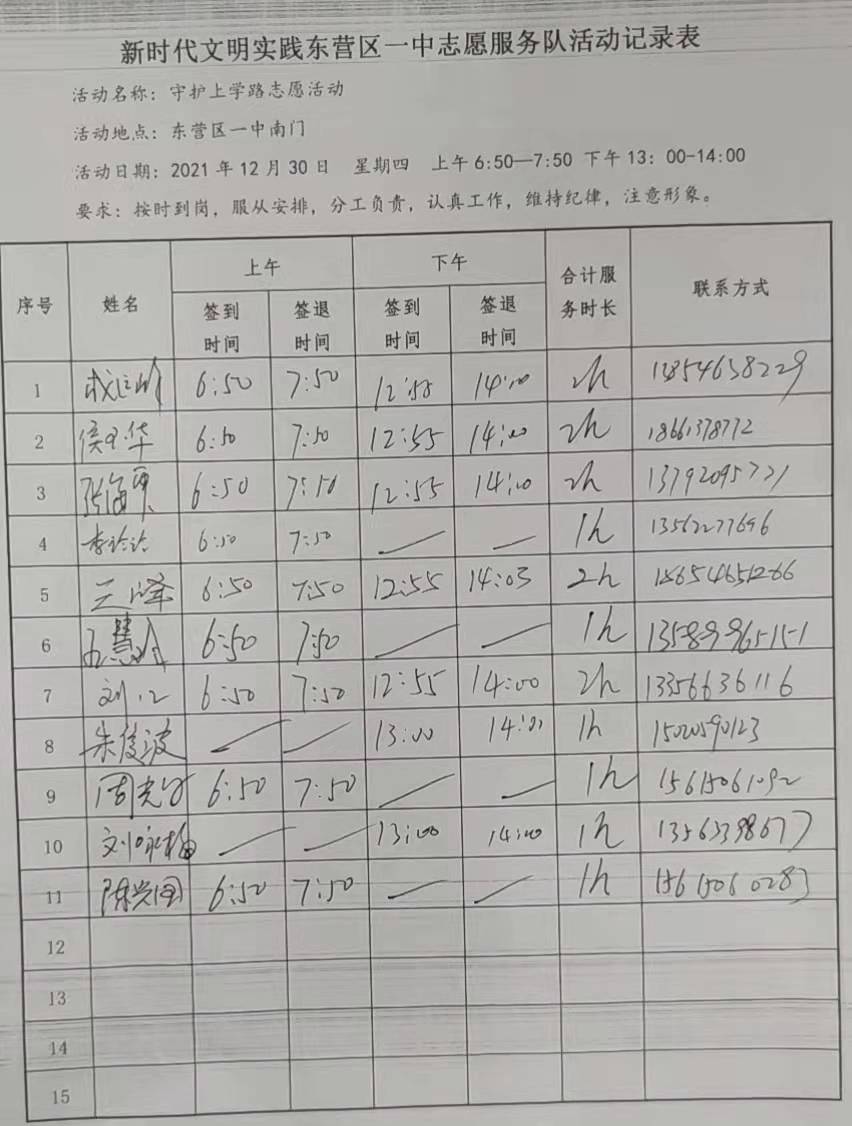 新时代文明实践东营区一中志愿服务队活动记录表
活动名称：守护上学路志愿活动
活动地点：东营区一中南门
活动日期：2021年12月30日 星期四 上午6:50—7:50 下午13：00-14:00
要求：按时到岗，服从安排，分工负责，认真工作，维持纪律，注意形象。
序号 姓名 上午 下午 合计服务时长 联系方式
签到时间 签退时间 签到时间 签退时间
1 6:50 7:50 12:58 14:00 2h
2 侯 华 6:50 7:50 12:55 14:00 2h 18661378772
3 张海 6:50 7:50 12:55 14:00 2h 13792095721
4 李玲玲 6:50 7:50 — — 1h 13562277696
5 王峰 6:50 7:50 12:55 14:03 2h
6 慧 6:50 7:50 — — 1h 13589965151
7 刘 6:50 7:50 12:55 14:00 2h 13356636116
8 朱俊波 — — 13:00 14:00 1h 15020590123
9 周 6:50 7:50 — — 1h 15615061092
10 刘咏梅 — — 13:00 14:00 1h 13563398677
11 陈兴国 6:50 7:50 — — 1h 15615060283
12
13
14
15